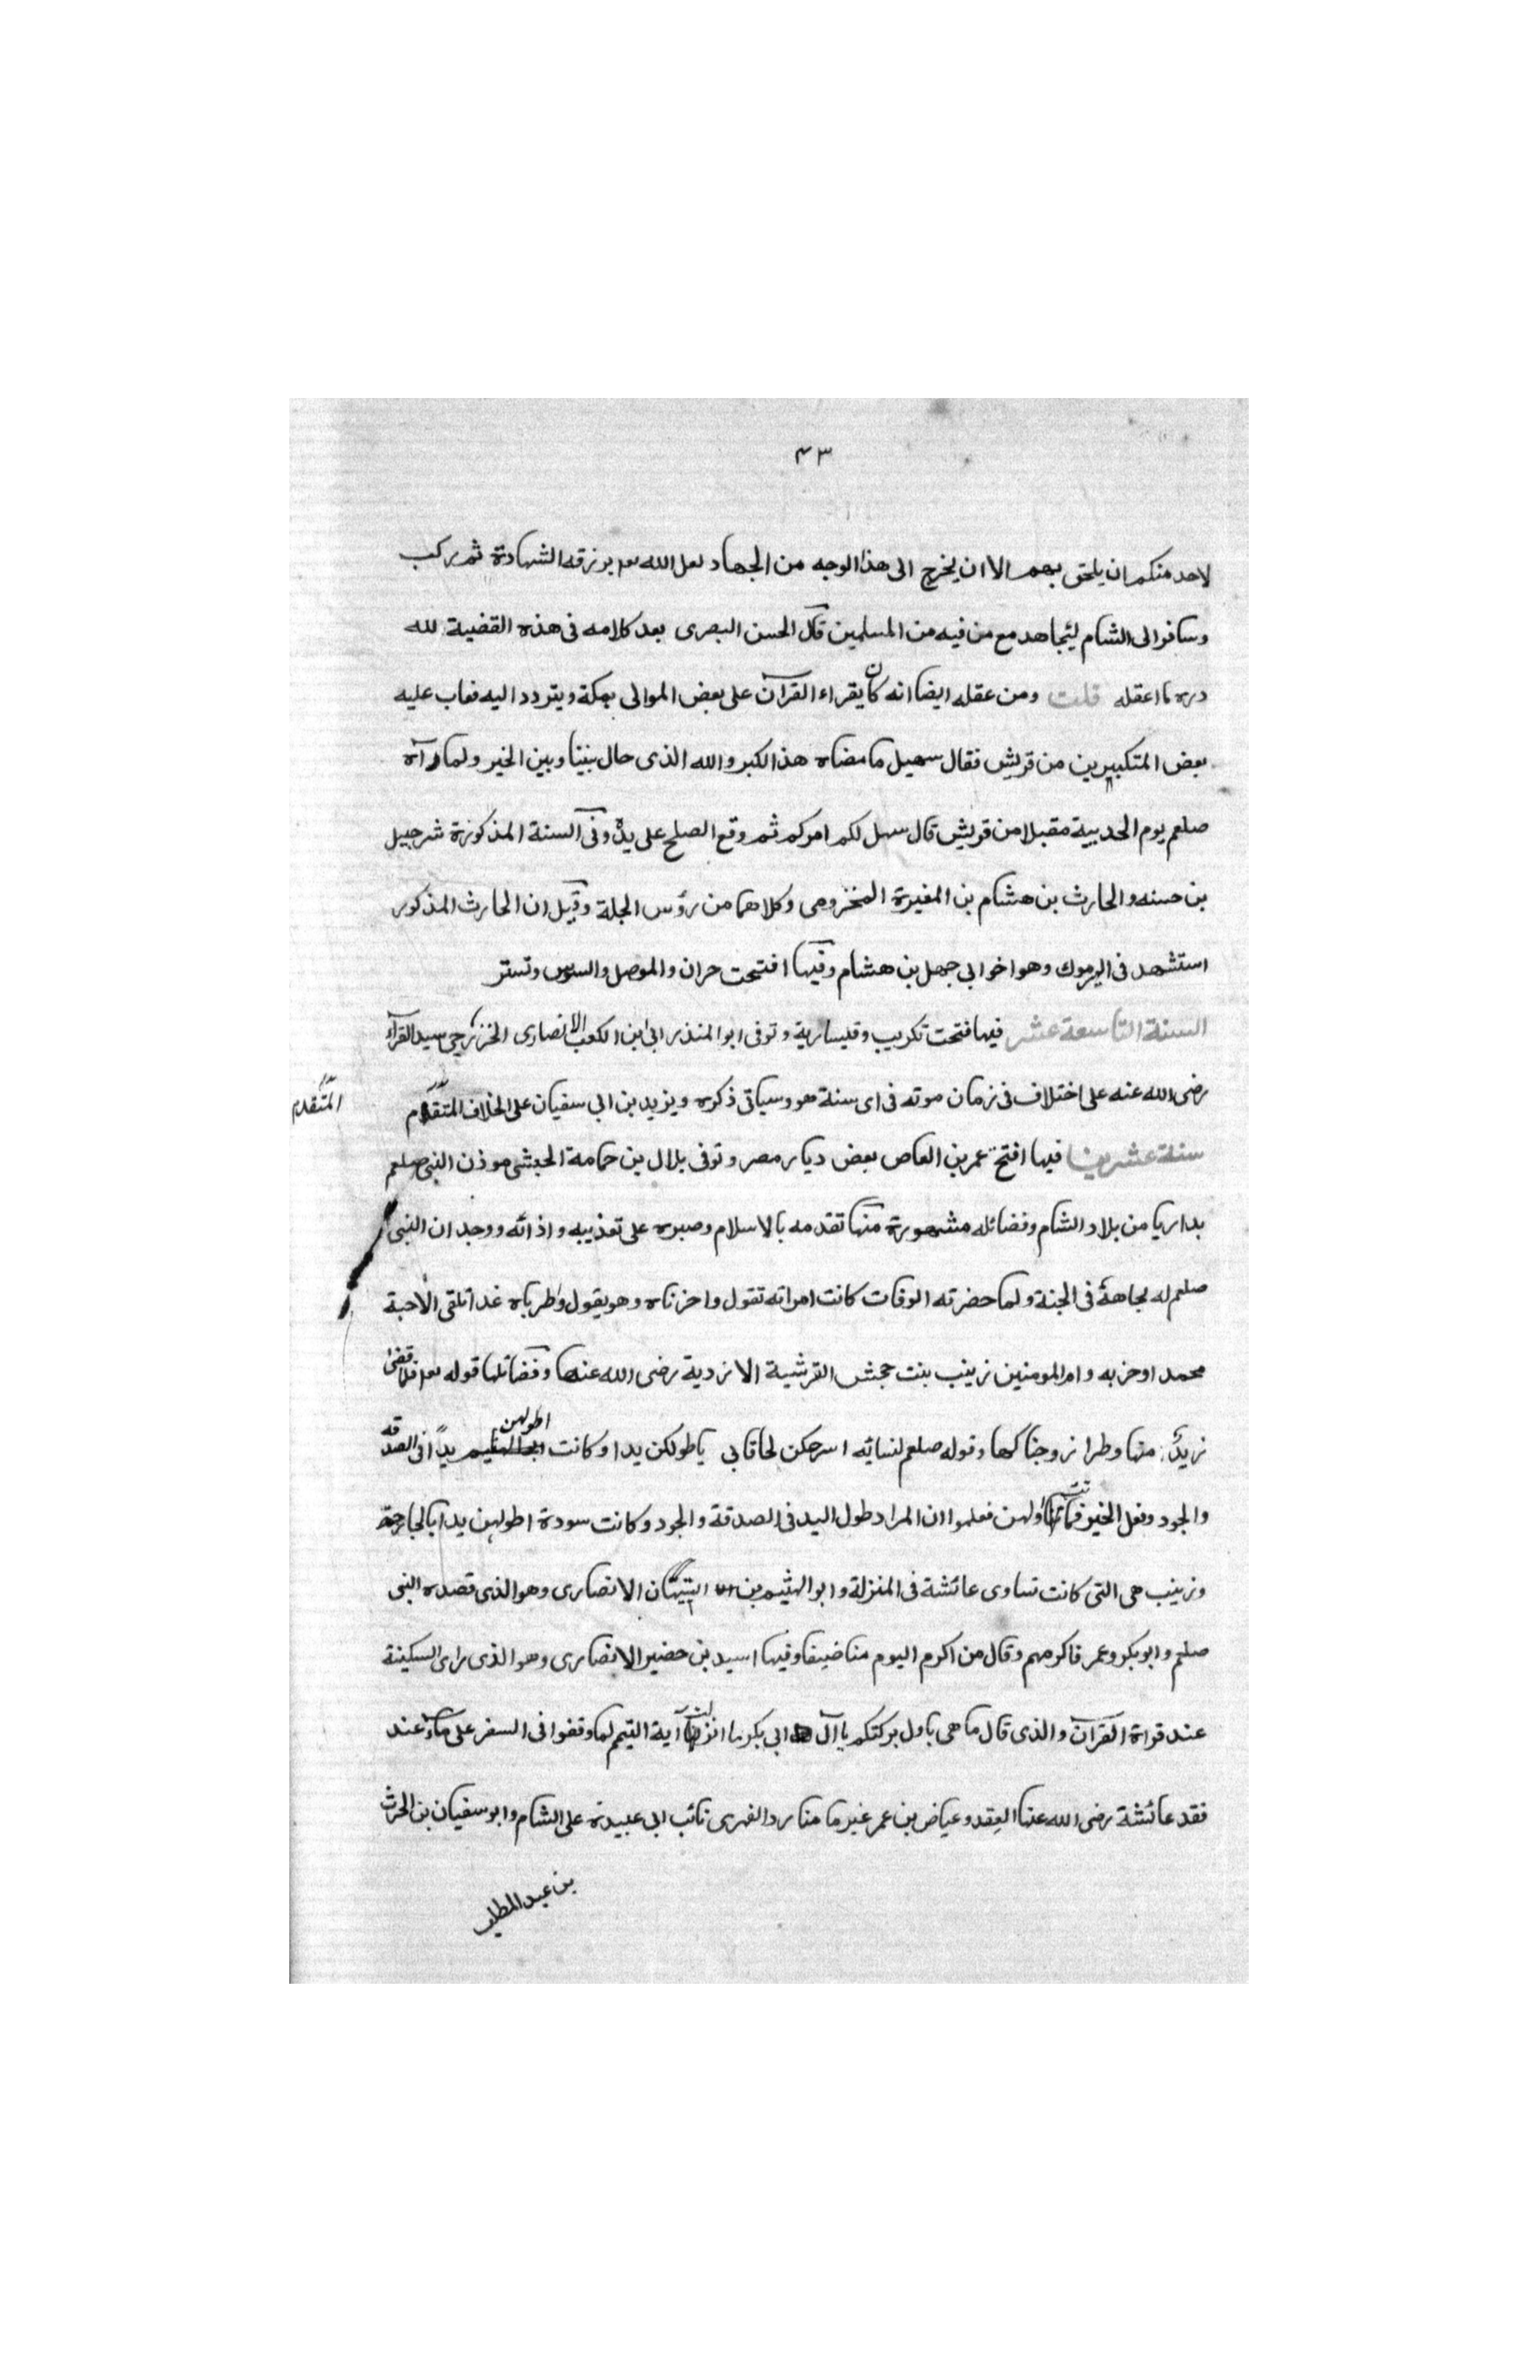 ٤٣
لاحد منكم ان يلحق بهم الا ان يخرج الى هذا الوجه من الجهاد لعل الله تعا يرزقه الشهادة ثم ركب
وسافر الى الشام ليجاهد مع من فيه من المسلمين قال الحسن البصرى بعد كلامه فى هذه القضية لله
دره ما اعقله قلت ومن عقله ايضا انه كان يقراء القرآن على بعض الموالى بمكة ويتردد اليه فعاب عليه
بعض المتكبرين من قريش فقال سهيل ما معناه هذا الكبر والله الذى حال بيننا وبين الخير ولما رآه
صلعم يوم الحديبية مقبلا من قريش قال سهل لكم امركم ثم وقع الصلح على يده وفى السنة المذكورة شرحبيل
بن حسنه والحارث بن هشام بن المغيرة المخزومى وكلاهما من رؤس الجلة وقيل ان الحارث المذكور
استشهد فى اليرموك وهو اخو ابى جهل بن هشام وفيها افتتحت حران والموصل والسوس وتستر
السنة التاسعة عشر فيها فتحت تكريب وقيسارية وتوفى ابو المنذر ابى ابن الكعب الانصارى الخزرجى سيد القرآء
رضى الله عنه على اختلاف فى زمان موته فى اى سنة هو وسياتى ذكره ويزيد بن ابى سفيان على الخلاف المتقدم
المتقدم
سنة عشرين فيها افتتح عمر بن العاص بعض ديار مصر وتوفى بلال بن حمامة الحبشى موذن النبى صلعم
بداريا من بلاد الشام وفضائله مشهورة منها تقدمه بالاسلام وصبره على تعذيبه واذائه ووجد ان النبى
صلعم له تجاهه فى الجنة ولما حضرته الوفات كانت امراته تقول واحزناه وهو يقول وطرباه غدا تلقى الاحبة
محمد او حزبه وام المومنين زينب بنت جحش القرشية الازدية رضى الله عنها وفضائلها قوله تعا فلما قضى
زيد منها وطرا زوجناكها وقوله صلعم لنسائه اسرعكن لحاقا بى ياطولكن يدا وكانت اطولهن يدا فى الصدقه
والجود وفعل الخير فماتت اولهن فعلموا ان المراد طول اليد فى الصدقة والجود وكانت سودة اطولهن يدا بالجارحة
وزينب هى التى كانت تساوى عائشة فى المنزلة وابو الهثيم بن التيهان الانصارى وهو الذى قصده النبى
صلعم وابو بكر وعمر فاكرمهم وقال من اكرم اليوم منا ضيفا وفيها اسيد بن حضير الانصارى وهو الذى راى السكينة
عند قراة القرآن والذى قال ما هى باول بركتكم يا آل ابى بكر لما انزلت آية التيمم لما وقفوا فى السفر على ماء عند
فقد عائشة رضى الله عنها العقد وعياض بن عمر غير ما منا رد الفهرى نائب ابى عبيدة على الشام وابو سفيان بن الحرث
بن عبد المطلب